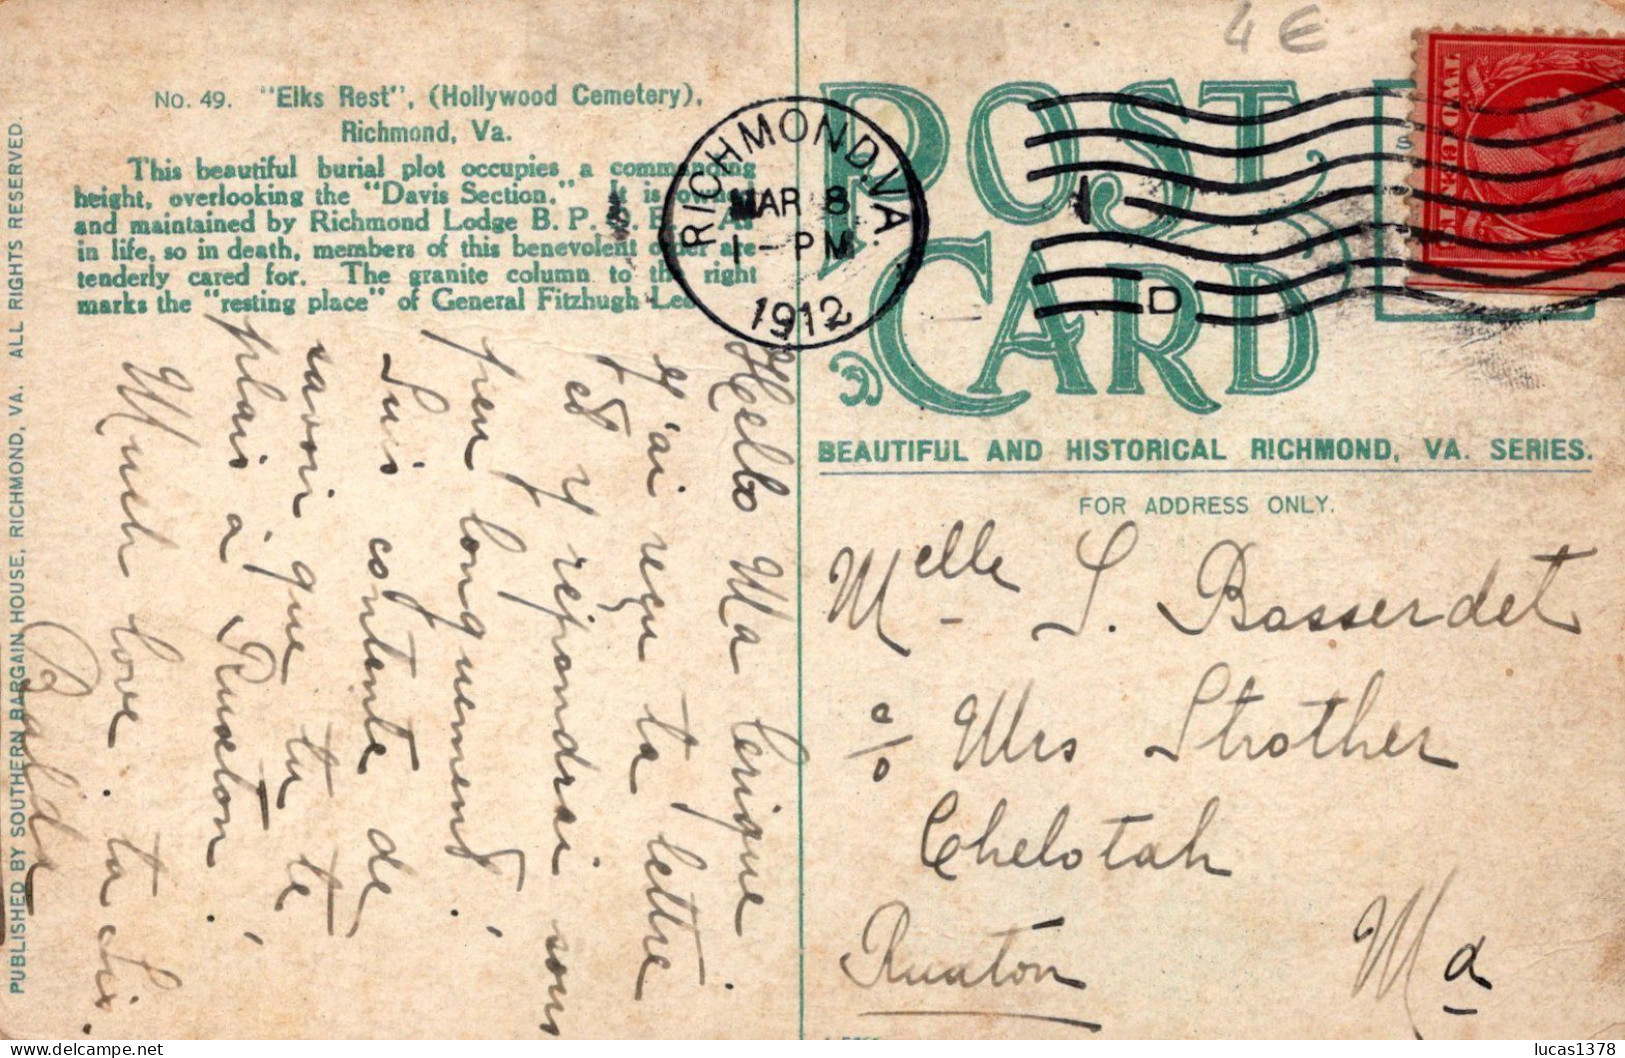 4 €
No. 49. "Elks Rest", (Hollywood Cemetery),
Richmond, Va.
This beautiful burial plot occupies a commanding
height, overlooking the "Davis Section." It is owned
and maintained by Richmond Lodge B. P. O. E. As
in life, so in death, members of this benevolent order are
tenderly cared for. The granite column to the right
marks the "resting place" of General Fitzhugh Lee
RICHMOND, VA.
MAR 8
1 - PM
1912
1
D
TWO CENTS
POST
CARD
BEAUTIFUL AND HISTORICAL RICHMOND, VA. SERIES.
FOR ADDRESS ONLY.
Melle S. Bosserdet
c/o Mrs Strother
Chelotah
Ruxton Md
Hello Ma
j'ai reçu ta lettre
et y répondrai sous
peu longuement.
Suis contente de
savoir que tu te
plais à Ruxton.
Much love. ta
PUBLISHED BY SOUTHERN BARGAIN HOUSE, RICHMOND, VA. ALL RIGHTS RESERVED.
lucas1378